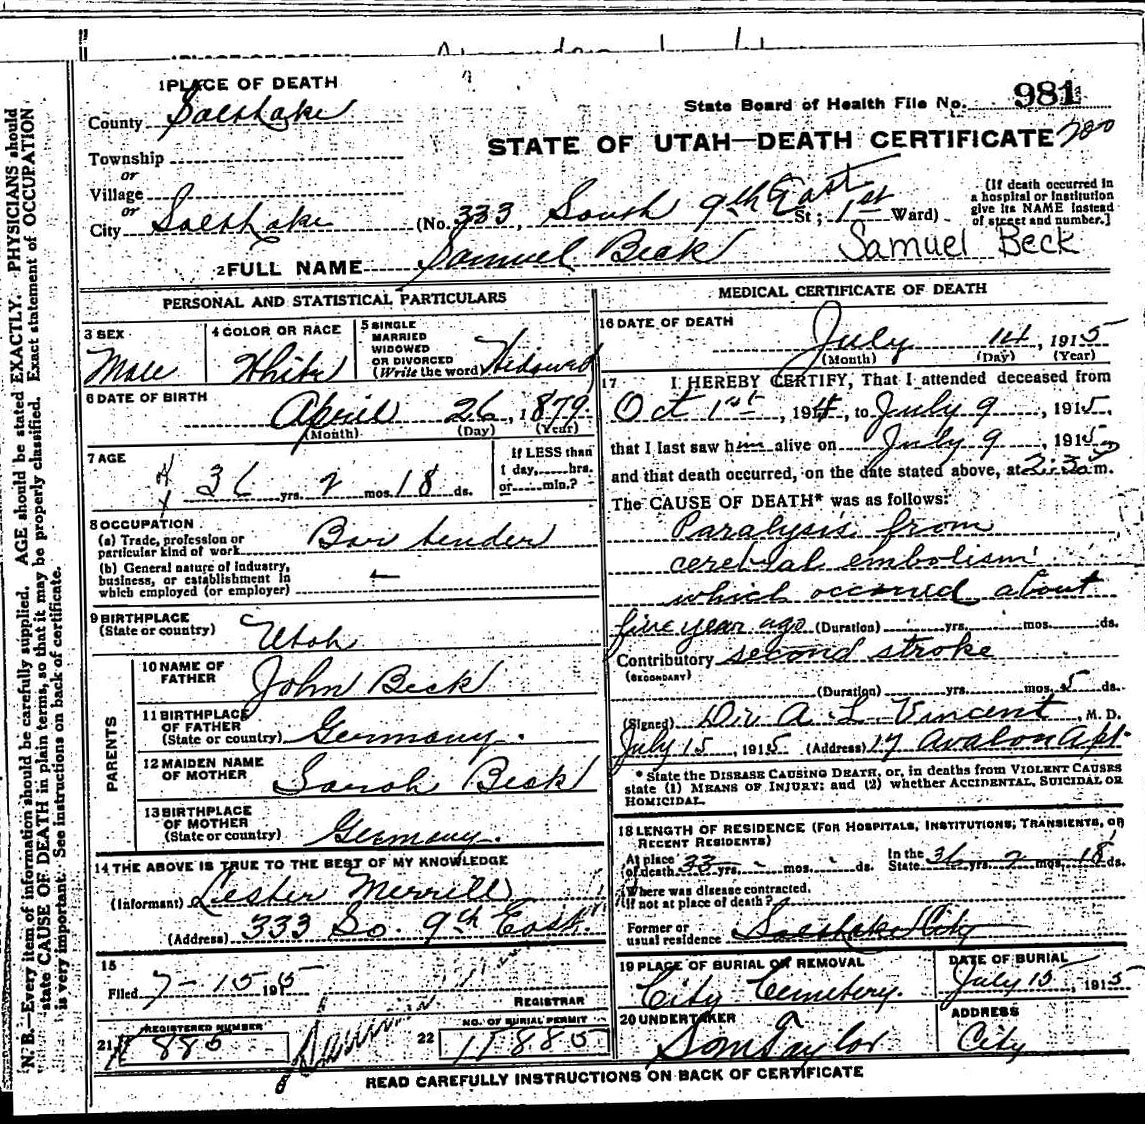 1 PLACE OF DEATH
County Saltlake
Township
or
Village
or
City Saltlake
State Board of Health File No. 981
STATE OF UTAH—DEATH CERTIFICATE 700
(No. 333, South 9th East St; 1st Ward)
(If death occurred in
a hospital or institution
give its NAME instead
of street and number.]
2 FULL NAME Samuel Beck Samuel Beck
PERSONAL AND STATISTICAL PARTICULARS
3 SEX
Male
4 COLOR OR RACE
White
5 SINGLE
MARRIED
WIDOWED
OR DIVORCED
(Write the word) Widowed
6 DATE OF BIRTH
April 26, 1879
(Month) (Day) (Year)
7 AGE
36 yrs. 2 mos. 18 ds.
If LESS than
1 day, hrs.
or min.?
8 OCCUPATION
(a) Trade, profession or
particular kind of work Bar tender
(b) General nature of industry,
business, or establishment in
which employed (or employer)
9 BIRTHPLACE
(State or country) Utah
PARENTS
10 NAME OF
FATHER John Beck
11 BIRTHPLACE
OF FATHER
(State or country) Germany.
12 MAIDEN NAME
OF MOTHER Sarah Beck
13 BIRTHPLACE
OF MOTHER
(State or country) Germany.
14 THE ABOVE IS TRUE TO THE BEST OF MY KNOWLEDGE
(Informant) Lester Merrill
(Address) 333 So. 9th East.
15
Filed 7-15 1915
REGISTRAR
21 REGISTERED NUMBER
885
22 NO. OF BURIAL PERMIT
11885
MEDICAL CERTIFICATE OF DEATH
16 DATE OF DEATH
July 14, 1915
(Month) (Day) (Year)
17 I HEREBY CERTIFY, That I attended deceased from
Oct 1st, 1914, to July 9, 1915,
that I last saw him alive on July 9, 1915
and that death occurred, on the date stated above, at 2:30 P m.
The CAUSE OF DEATH* was as follows:
Paralysis from
cerebral embolism
which occured about
five year ago (Duration) yrs. mos. ds.
Contributory second stroke
(SECONDARY)
(Duration) yrs. mos. 5 ds.
(Signed) Dr. A. L. Vincent, M. D.
July 15, 1915 (Address) 17 Avalon Apt.
* State the DISEASE CAUSING DEATH, or, in deaths from VIOLENT CAUSES
state (1) MEANS OF INJURY; and (2) whether ACCIDENTAL, SUICIDAL OR
HOMICIDAL.
18 LENGTH OF RESIDENCE (FOR HOSPITALS, INSTITUTIONS, TRANSIENTS, OR
RECENT RESIDENTS)
At place
of death 33 yrs. mos. ds.
In the
State 36 yrs. 2 mos. 18 ds.
Where was disease contracted,
if not at place of death?
Former or
usual residence Saltlake City
19 PLACE OF BURIAL OR REMOVAL
City Cemetery.
DATE OF BURIAL
July 15, 1915
20 UNDERTAKER
S M Taylor
ADDRESS
City
READ CAREFULLY INSTRUCTIONS ON BACK OF CERTIFICATE
N. B.—Every item of information should be carefully supplied. AGE should be stated EXACTLY. PHYSICIANS should
state CAUSE OF DEATH in plain terms, so that it may be properly classified. Exact statement of OCCUPATION
is very important. See instructions on back of certificate.